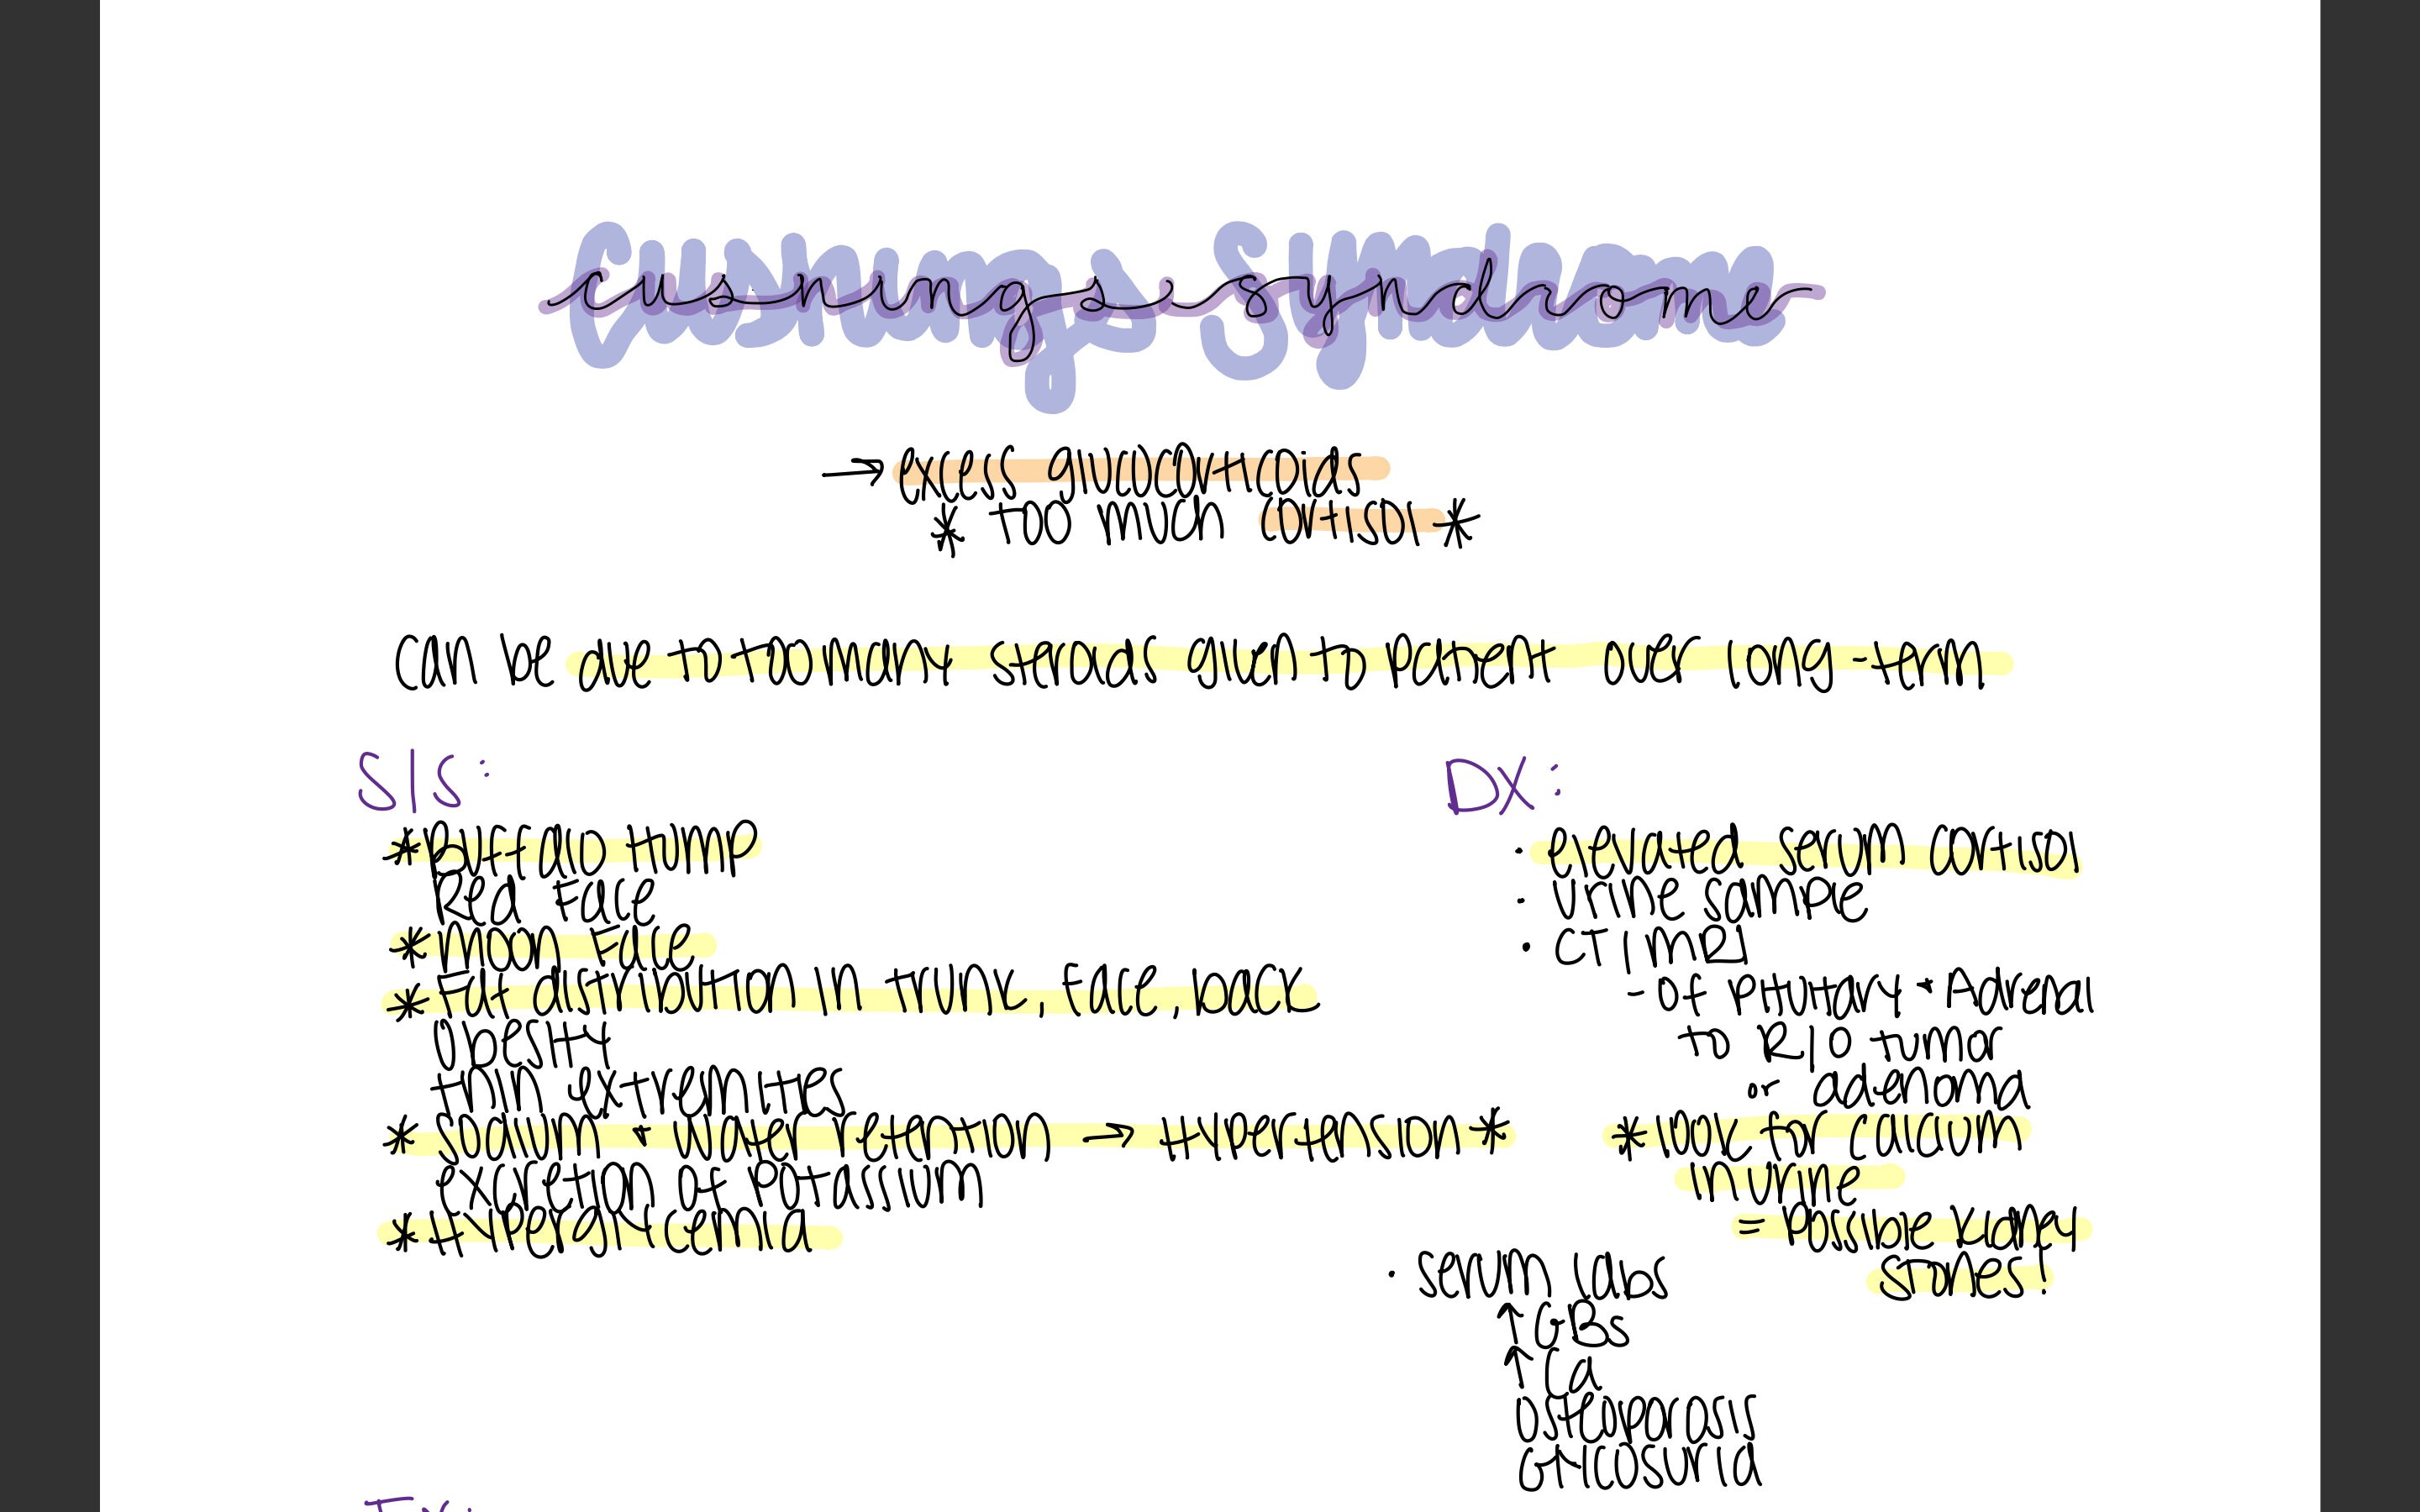 Cushings Syndrome
→ excess glucocorticoids
* too much cortisol *
can be due to too many steroids given to patient over long-term
S/S:
* Buffalo Hump
Red Face
* Moon Face
* Fat distribution in trunk, face, back
Obesity
thin extremities
* Sodium + Water retention → Hypertension *
excretion of Potassium
* Hyperglycemia
DX:
• elevated serum cortisol
• urine sample
• CT/MRI
- of pituitary + Adrenal
to R/O tumor
or adenoma
* look for calcium
in urine
= Possible kidney
stones!
• serum labs
↑ GBs
↑ Ca
osteoporosis
Glycosuria